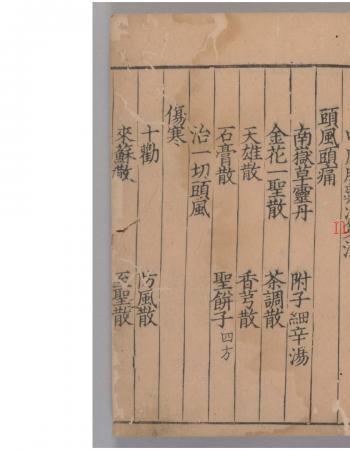 頭風頭痛
南嶽草靈丹 附子細辛湯
金花一聖散 茶調散
天雄散 香芎散
石膏散 聖餅子四方
治一切頭風
傷寒
十勸 防風散
來蘇散 至聖散